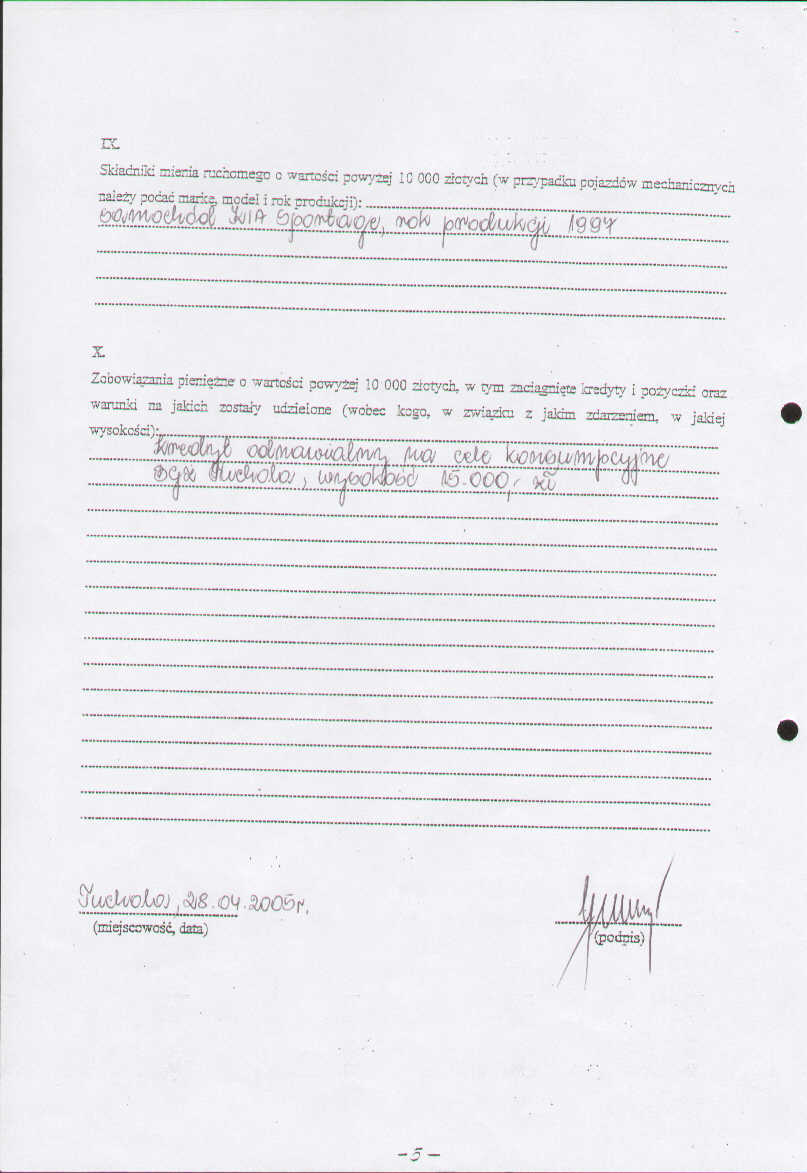 IX.
Składniki mienia ruchomego o wartości powyżej 10 000 złotych (w przypadku pojazdów mechanicznych
należy podać markę, model i rok produkcji):
samochód KIA Sportage, rok produkcji 1997
X.
Zobowiązania pieniężne o wartości powyżej 10 000 złotych, w tym zaciągnięte kredyty i pożyczki oraz
warunki na jakich zostały udzielone (wobec kogo, w związku z jakim zdarzeniem, w jakiej
wysokości):
kredyt odnawialny na cele konsumpcyjne
BGŻ Tuchola, wysokość 15.000,- zł
Tuchola, 28.04.2005r.
(miejscowość, data)
(podpis)
- 5 -